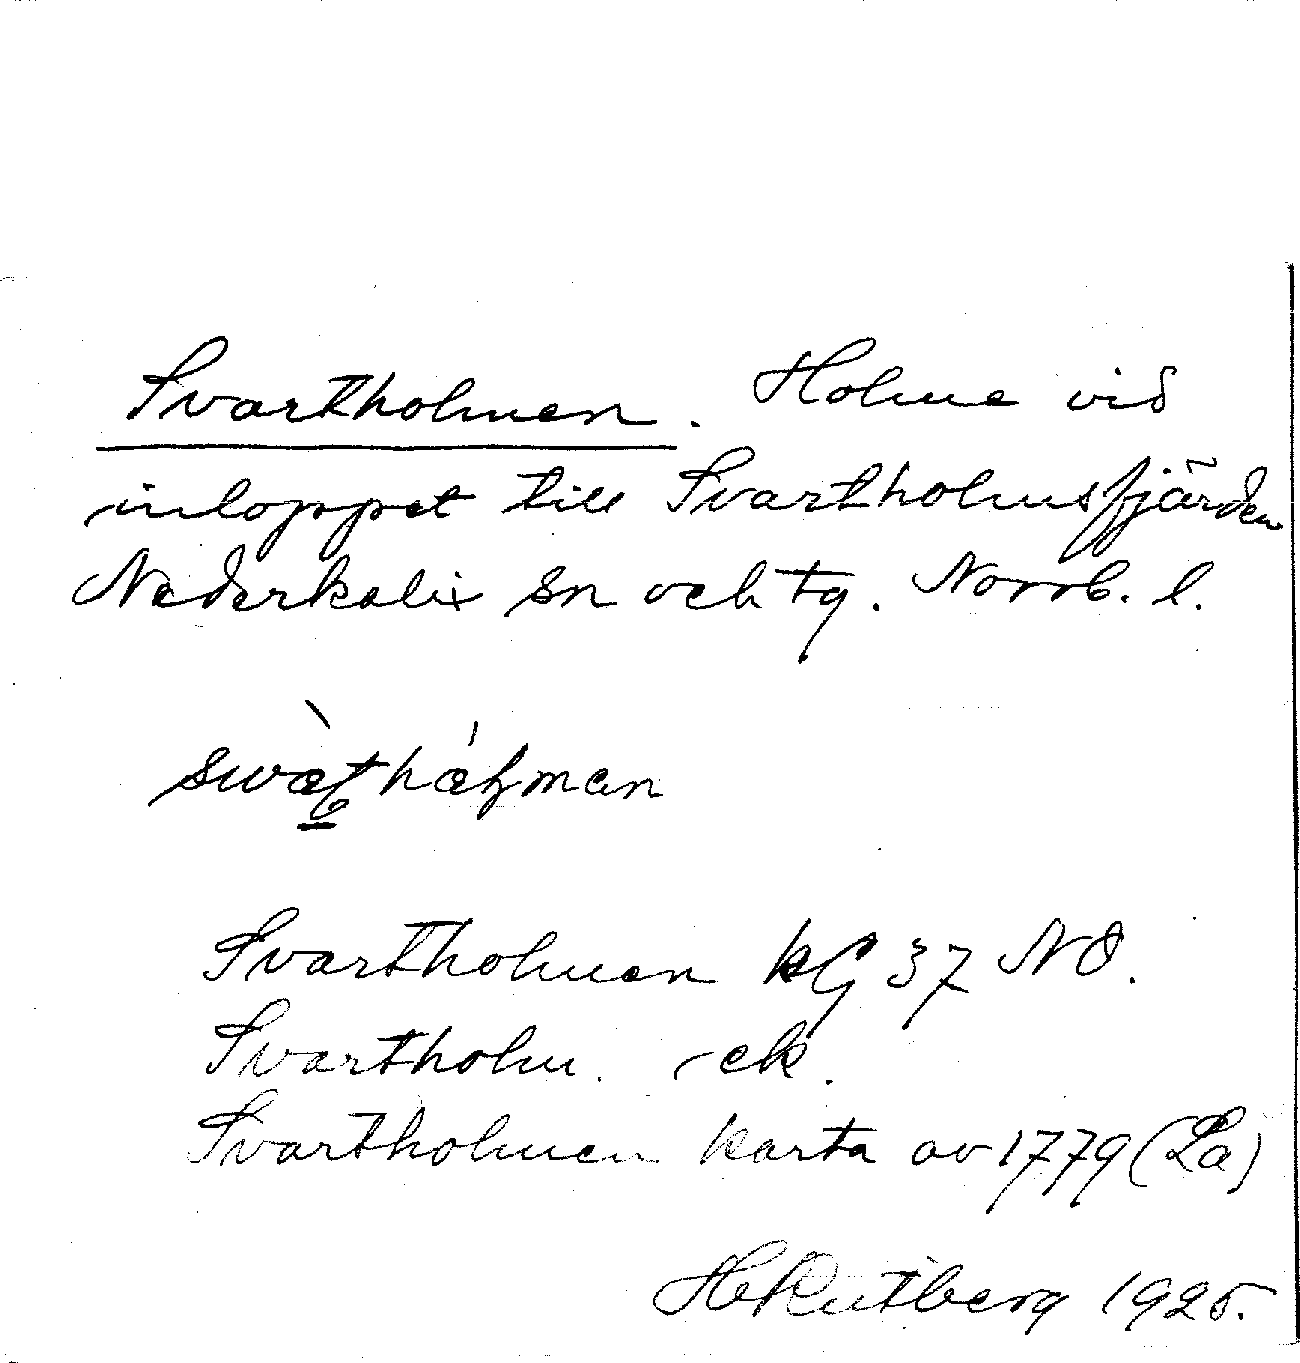 Svartholmen. Holme vid
inloppet till Svartholmsfjärden
Nederkalix sn och tg. Norrb. l.
Svartholmen kG 37 NO.
Svartholm. - ek.
Svartholmen karta av 1779 (La)
H Rutberg 1925.